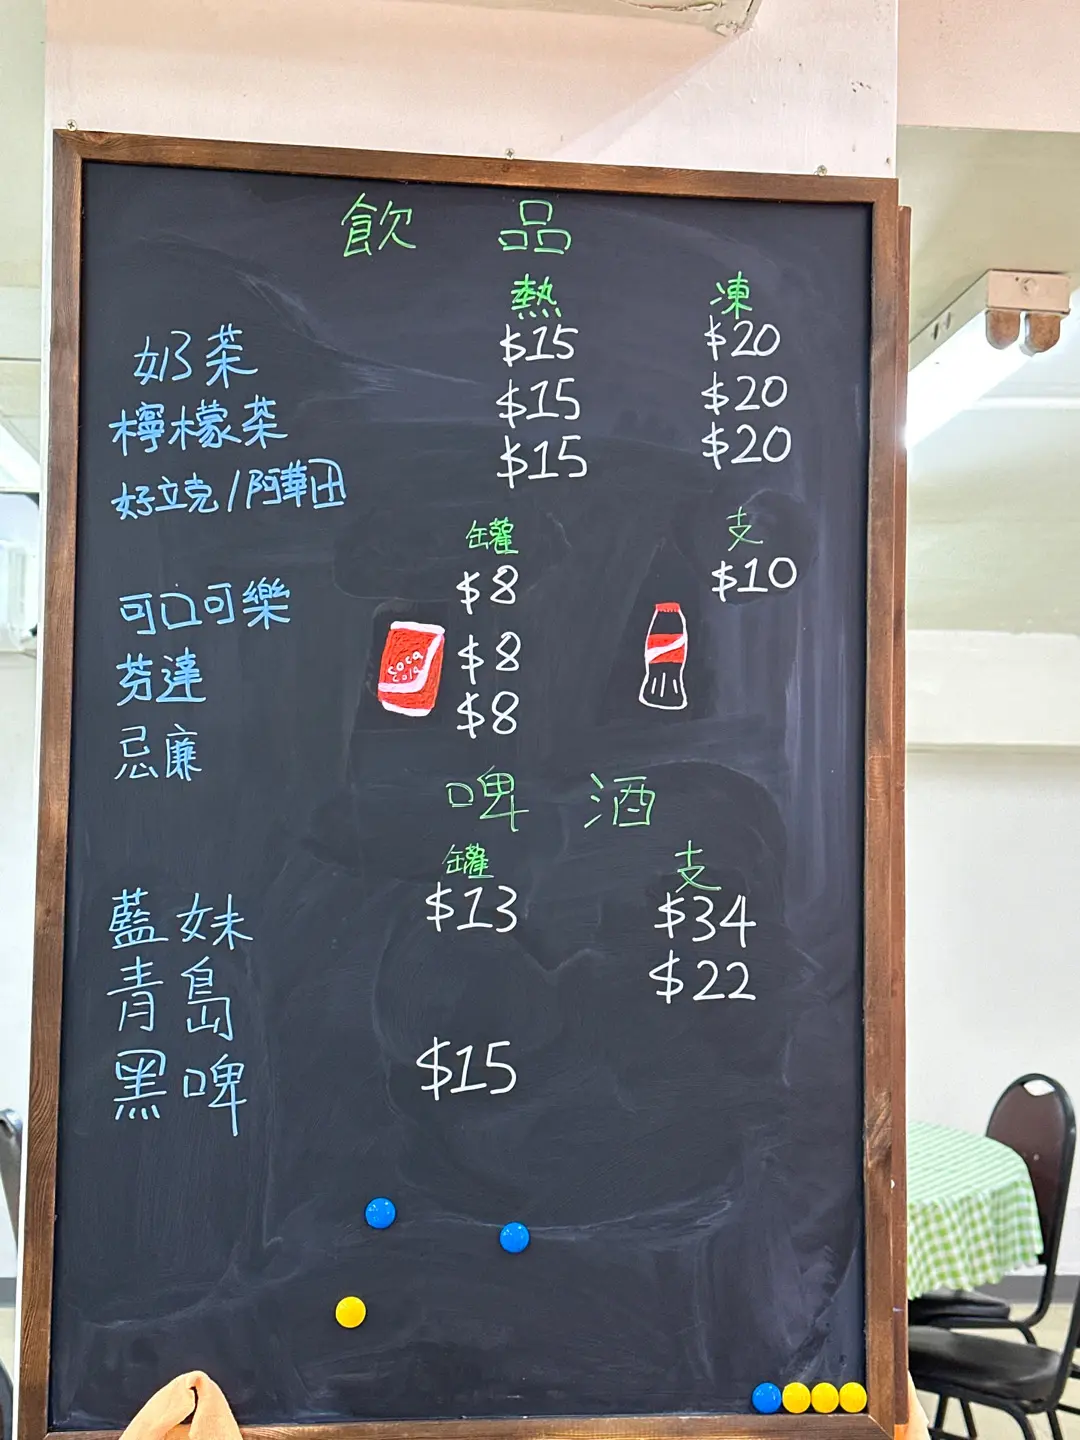 飲品
熱 凍
奶茶 $15 $20
檸檬茶 $15 $20
好立克/阿華田 $15 $20
罐 支
可口可樂 $8 $10
芬達 $8
忌廉 $8
coca
cola
啤酒
罐 支
藍妹 $13 $34
青島 $22
黑啤 $15